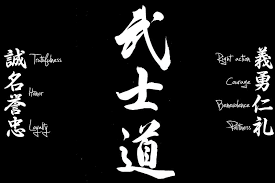 武士道
誠 Truthfulness
名誉 Honor
忠 Loyalty
義 Right action
勇 Courage
仁 Benevolence
礼 Politeness